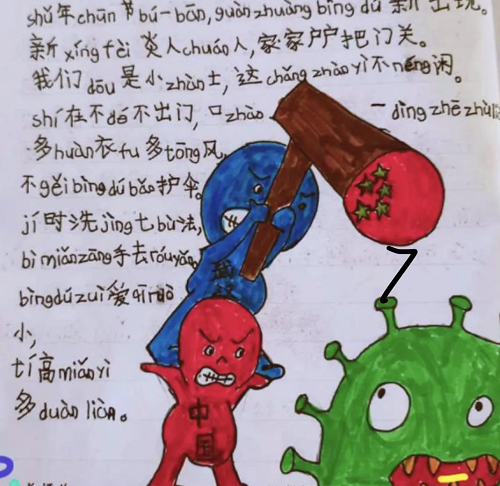 shǔ年chūn节bú一bān,guàn zhuàng bìng dú 新 出现。
新xíng fèi 炎人chuán人,家家户户把门关。
我们dōu是小zhàn士,这chǎng zhào yì不néng闲。
shí在不dé不出门,口zhào 一dìng zhē zhù
多huàn衣fu多tōng风,
不gěi bìng dú bǎo护伞。
jí时洗jìng七bù法,
bì miǎn zāng手去róu yǎn
bìng dú zuì爱
小,
tí高miǎn yì
多duàn liàn。
中
国
7